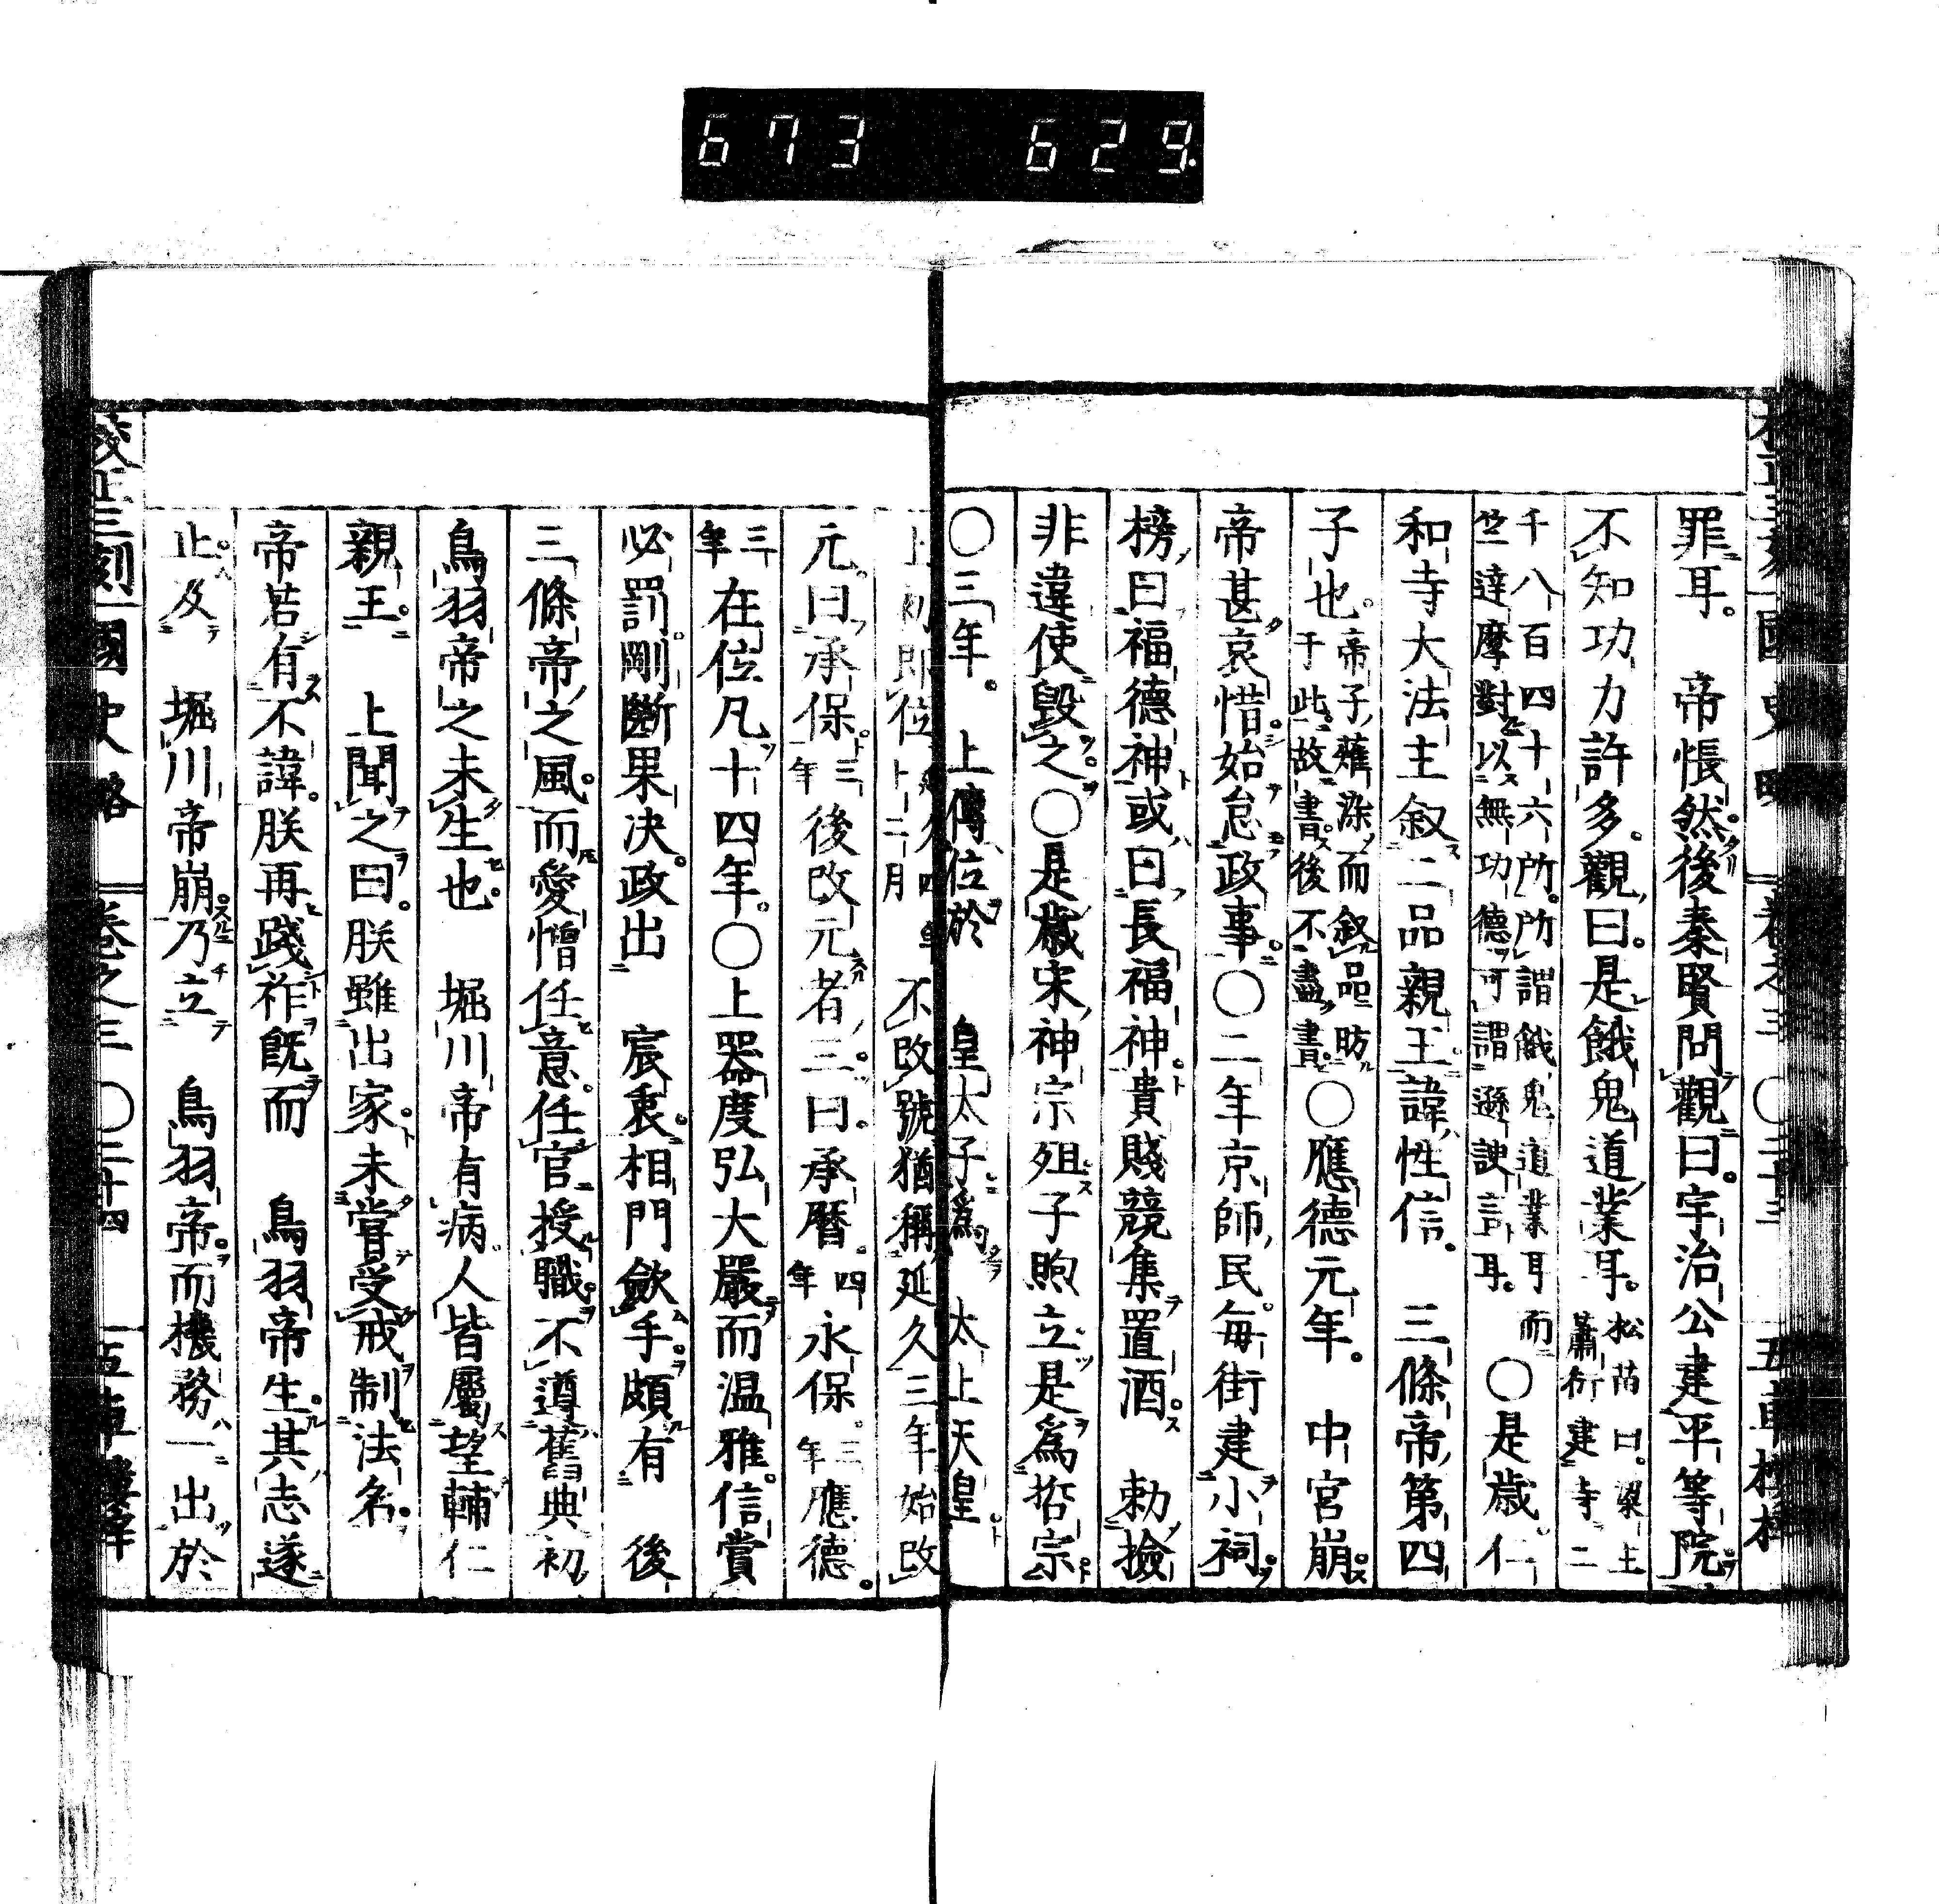 673 629.
國史略 卷之三 〇三十三
罪耳。 帝悵然。後秦賢問觀曰。宇治公建平等院
不知功力許多。觀曰。是餓鬼道業耳。松苗曰。梁主蕭衍建寺二
千八百四十六所。所謂餓鬼道業耳而竺達摩對以無功德可謂遜諛言耳。〇是歲仁
和寺大法主敘二品親王諱性信。 三條帝第四
子也。帝子薙染而敘品昉于此。故書。後不盡書。〇應德元年。 中宮崩。
帝甚哀惜。始怠政事。〇二年京師民每街建小祠。
榜曰福德神或曰長福神。貴賤競集置酒。 勅撿
非違使毀之。〇是歲宋神宗殂子煦立是爲哲宗。
〇三年。 上傳位於 皇太子爲 太上天皇
上初即位 不改號猶稱延久三年始改
元。曰承保。三年後改元者三。曰承曆。四年永保。三年應德。
三年在位凡十四年。〇上器度弘大嚴而温雅。信賞
必罰。剛斷果決。政出 宸衷。相門歛手。頗有 後
三條帝之風。而愛憎任意。任官授職。不遵舊典初
鳥羽帝之未生也。 堀川帝有病。人皆屬望輔仁
親王。 上聞之曰。朕雖出家。未嘗受戒制法名。
帝若有不諱。朕再踐祚既而 鳥羽帝生。其志遂
止。及 堀川帝崩。乃立 鳥羽帝。而機務一出於
校正三刻 國史略 卷之三 〇三十四